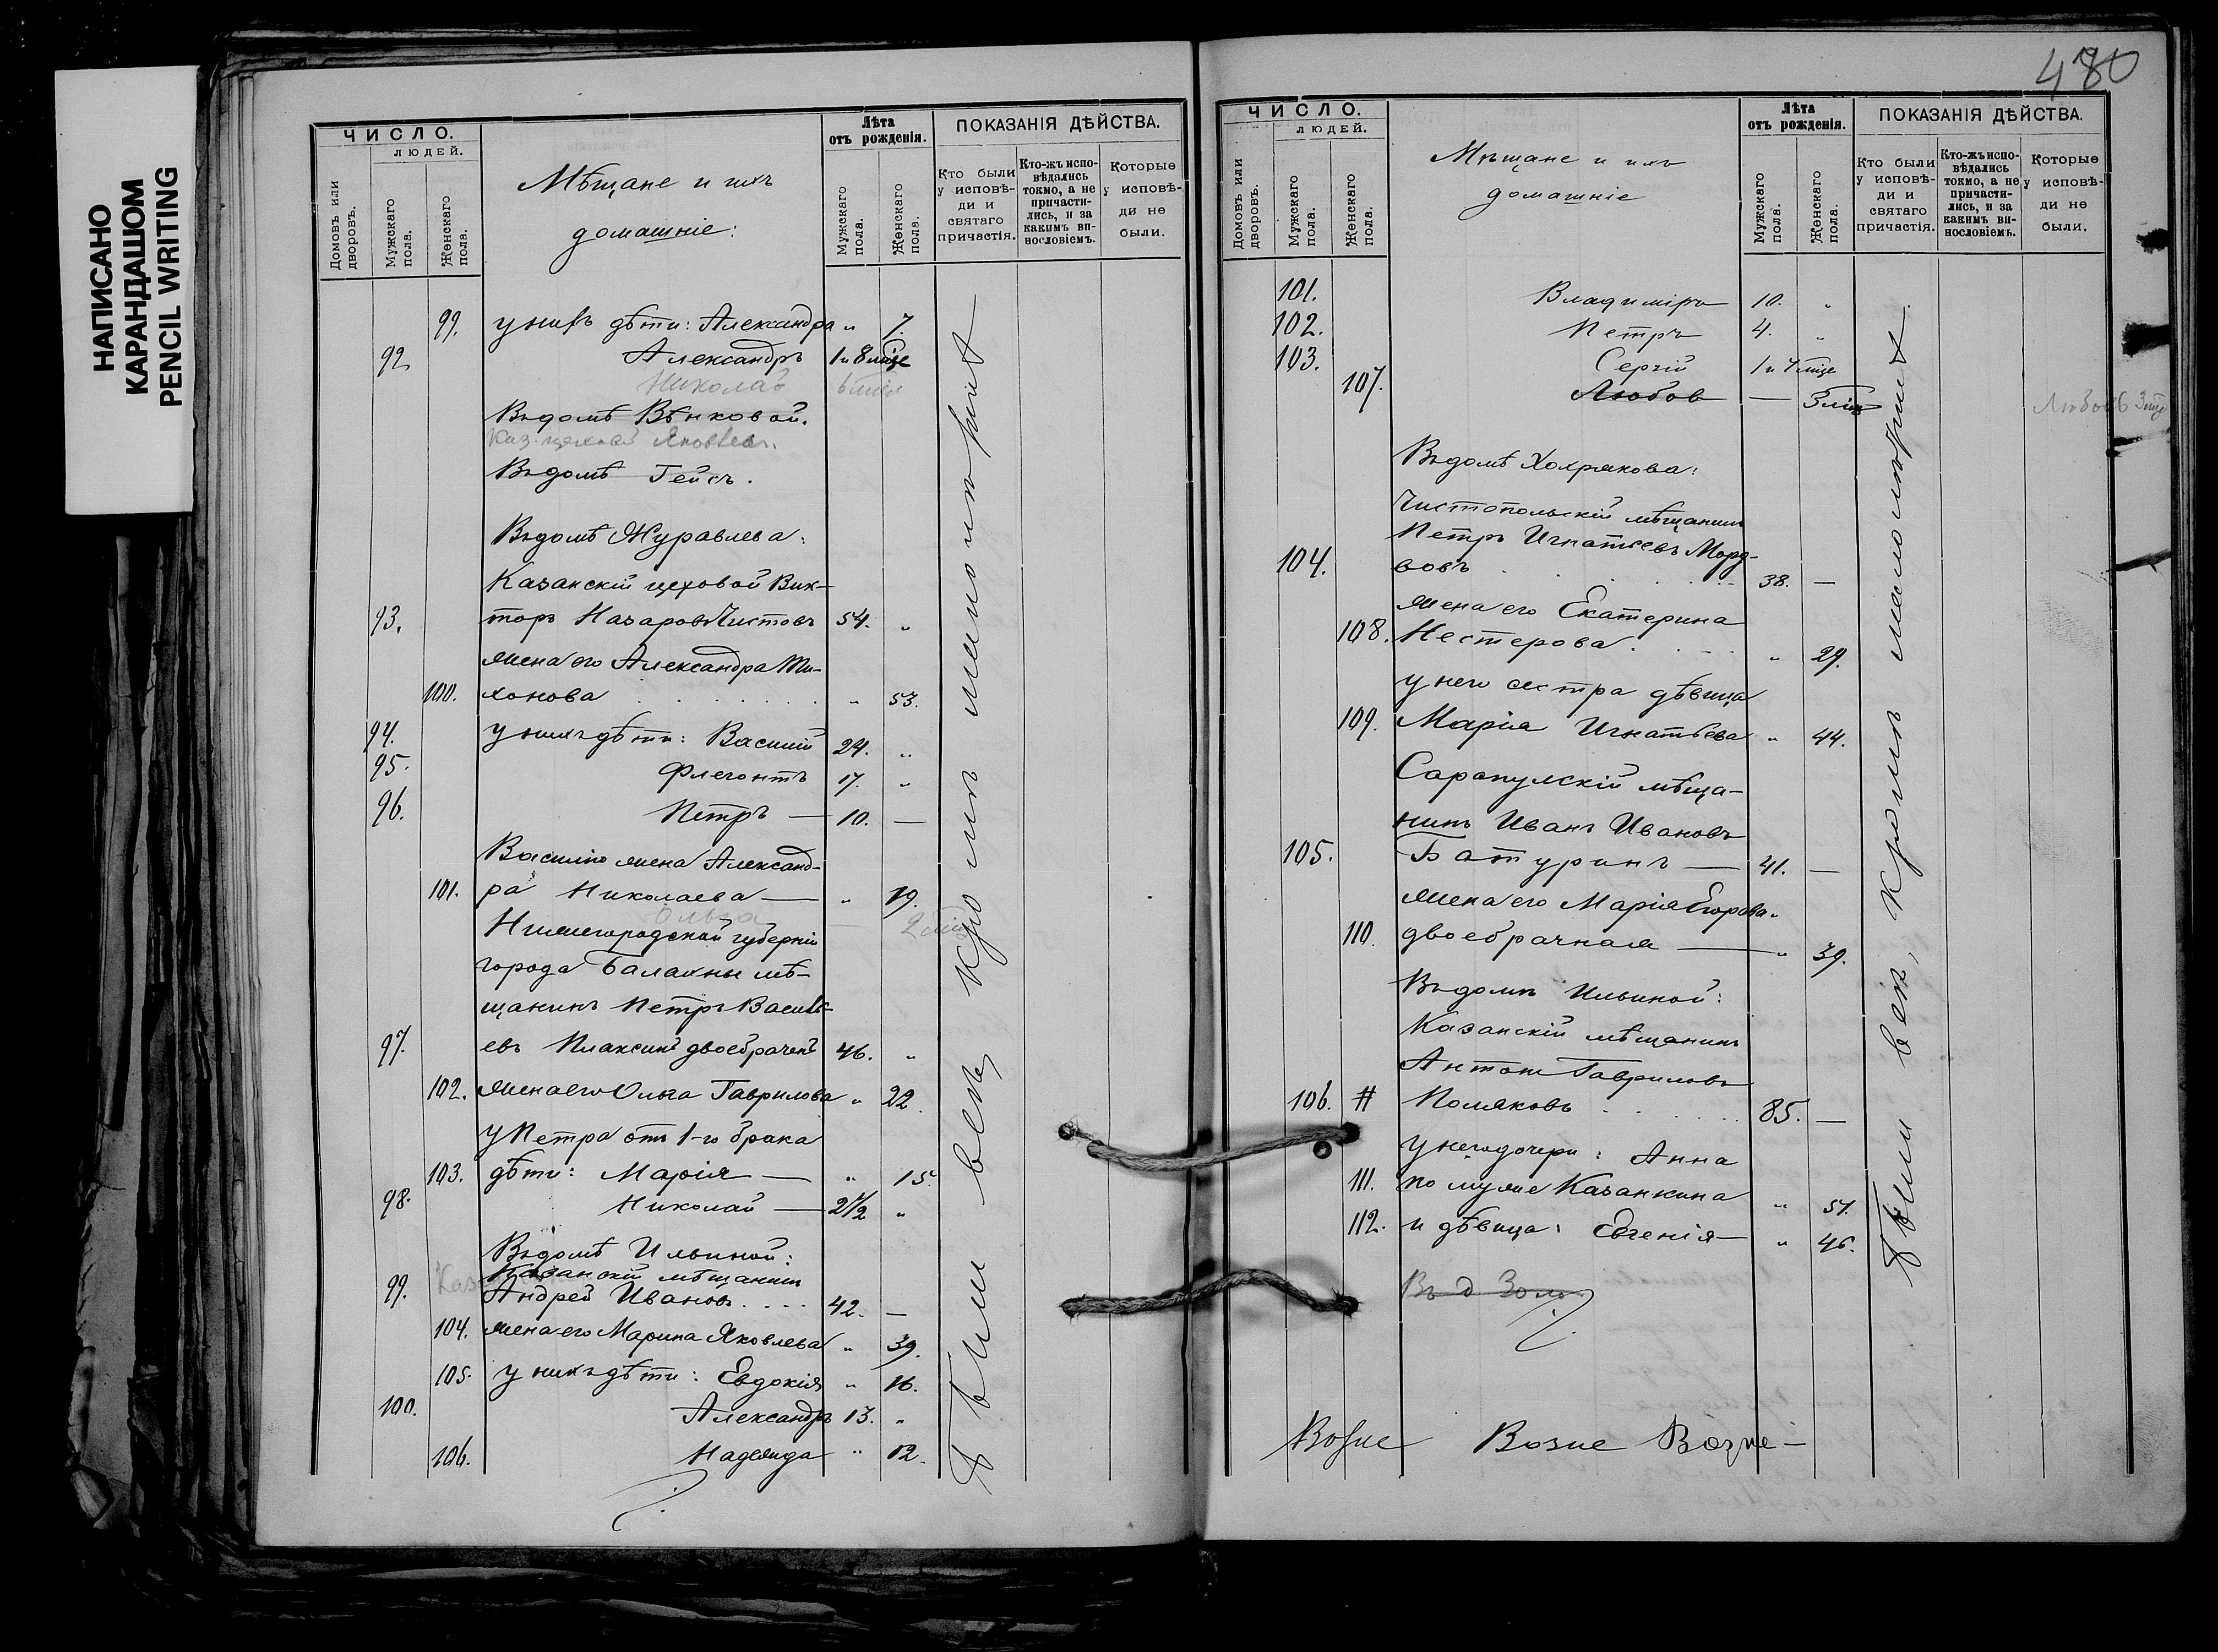 НАПИСАНО
КАРАНДАШОМ
PENCIL WRITING
ЧИСЛО.
ЛЮДЕЙ.
Домовъ или дворовъ.
Мужскаго пола.
Женскаго пола.
Мѣщане и ихъ
домашніе:
Лѣта
отъ рожденія.
Мужскаго пола.
Женскаго пола.
ПОКАЗАНІЯ ДѢЙСТВА.
Кто были у исповѣ-ди и святаго причастія.
Кто-жъ испо-вѣдались токмо, а не причасти-лись, и за какимъ ви-нословіемъ.
Которые у исповѣ-ди не были.
99. у нихъ дѣти: Александра " 7.
92. Александръ 1 и 8 мѣце
Николай
Въ домѣ Вѣнковой.
Каз. цеховой Яковлев.
Въ домѣ Гейсъ.
Въ домѣ Журавлева:
Казанскій цеховой Вик-
93. торъ Назаровъ Чистовъ 54. "
жена его Александра Ти-
100. хонова " 53.
94. у нихъ дѣти: Василій 24. "
95. Флегонтъ 17. "
96. Петръ — 10. —
Василію жена Александ-
101. ра Николаева — " 19.
Ольга
Нижегородской губерніи
города Балахны мѣ-
щанинъ Петръ Василь-
97. евъ Плаксинъ двоебраченъ 46. "
102. жена его Ольга Гаврилова " 22.
у Петра отъ 1-го брака
103. дѣти: Марія — " 15.
98. Николай — 2 1/2 "
Въ домѣ Ильиной:
Казанскій мѣщанинъ
99. Андрей Ивановъ.... 42. —
104. жена его Марина Яковлева " 39.
105. у нихъ дѣти: Евдокія " 16.
100. Александръ 13. "
106. Надежда " 12.
были всѣ, кромѣ малолѣтнихъ
480
ЧИСЛО.
ЛЮДЕЙ.
Домовъ или дворовъ.
Мужскаго пола.
Женскаго пола.
Мѣщане и ихъ
домашніе
Лѣта
отъ рожденія.
Мужскаго пола.
Женскаго пола.
ПОКАЗАНІЯ ДѢЙСТВА.
Кто были у исповѣ-ди и святаго причастія.
Кто-жъ испо-вѣдались токмо, а не причасти-лись, и за какимъ ви-нословіемъ.
Которые у исповѣ-ди не были.
101. Владиміръ 10. "
102. Петръ 4. "
103. Сергій 1 и 7 мѣце
107. Любов — 3 мѣц
Любовь 3 мѣц
Въ домѣ Хохрякова:
Чистопольскій мѣщанинъ
Петръ Игнатьевъ Морд-
104. вовъ 38. —
жена его Екатерина
108. Нестерова. " 29.
у него сестра дѣвица
109. Марія Игнатьева " 44.
Сарапулскій мѣща-
нинъ Иванъ Ивановъ
105. Батуринъ — 41. —
жена его Марія Егорова
110. двоебрачная — " 39.
Въ домѣ Ильиной:
Казанскій мѣщанинъ
Антонъ Гавриловъ
106. # Поляковъ 85. —
у него дочери: Анна
111. по мужѣ Казанкина " 51.
112. и дѣвица: Евгенія — " 46.
Въ д Золо
были всѣ, кромѣ малолѣтнихъ
Возне Возне Возне—